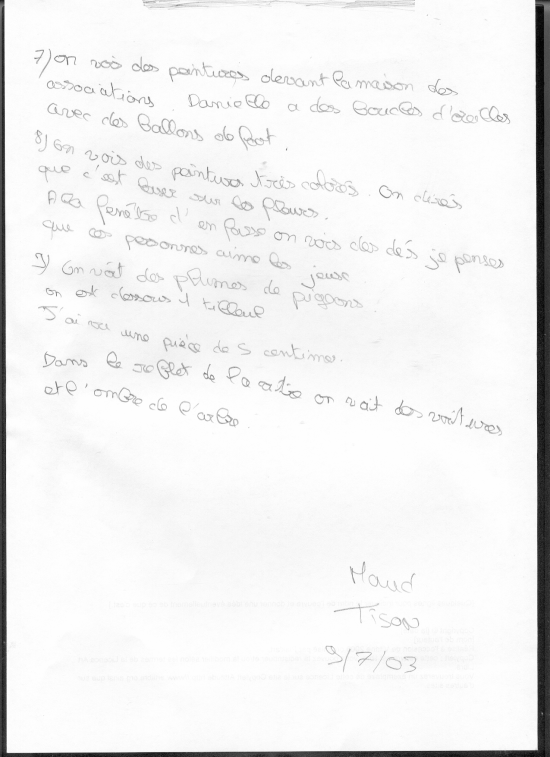 7) On vois des peintures devant la maison des
associations. Danielle a des boucles d'oreilles
avec des ballons de foot.
8) On vois des peinture très colorés. On dirés
que c'est leser sur les fleurs.
A la fenêtre d'en fasse on vois des dés je penses
que ces personnes aime les jeuse
9) On voit des plumes de pigeons
on est dessous 1 tilleul
J'ai vu une pièce de 5 centime.
Dans le reflet de la vitre on voit des voitures
et l'ombre de l'arbre.
Maud
Tison
9/7/03